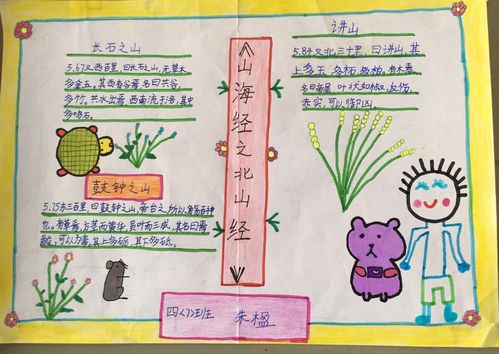 长石之山
5.67又西百里，曰长石之山，无草木
多金玉。其西有谷焉，名曰共谷，
多竹。共水出焉，西南流于洛，其中
多鸣石。
鼓钟之山
5.75东三百里，曰鼓钟之山，帝台之所以觞百神
也。有草焉，方茎而黄华，员叶而三成，其名曰焉
酸，可以为毒。其上多砺，其下多砥。
《山海经之北山经》
讲山
5.84又北三十里，曰讲山，其
上多玉，多柘，多柏。有木焉，
名曰帝屋，叶状如椒，反伤，
赤实，可以御凶。
四〈7〉班 朱楹